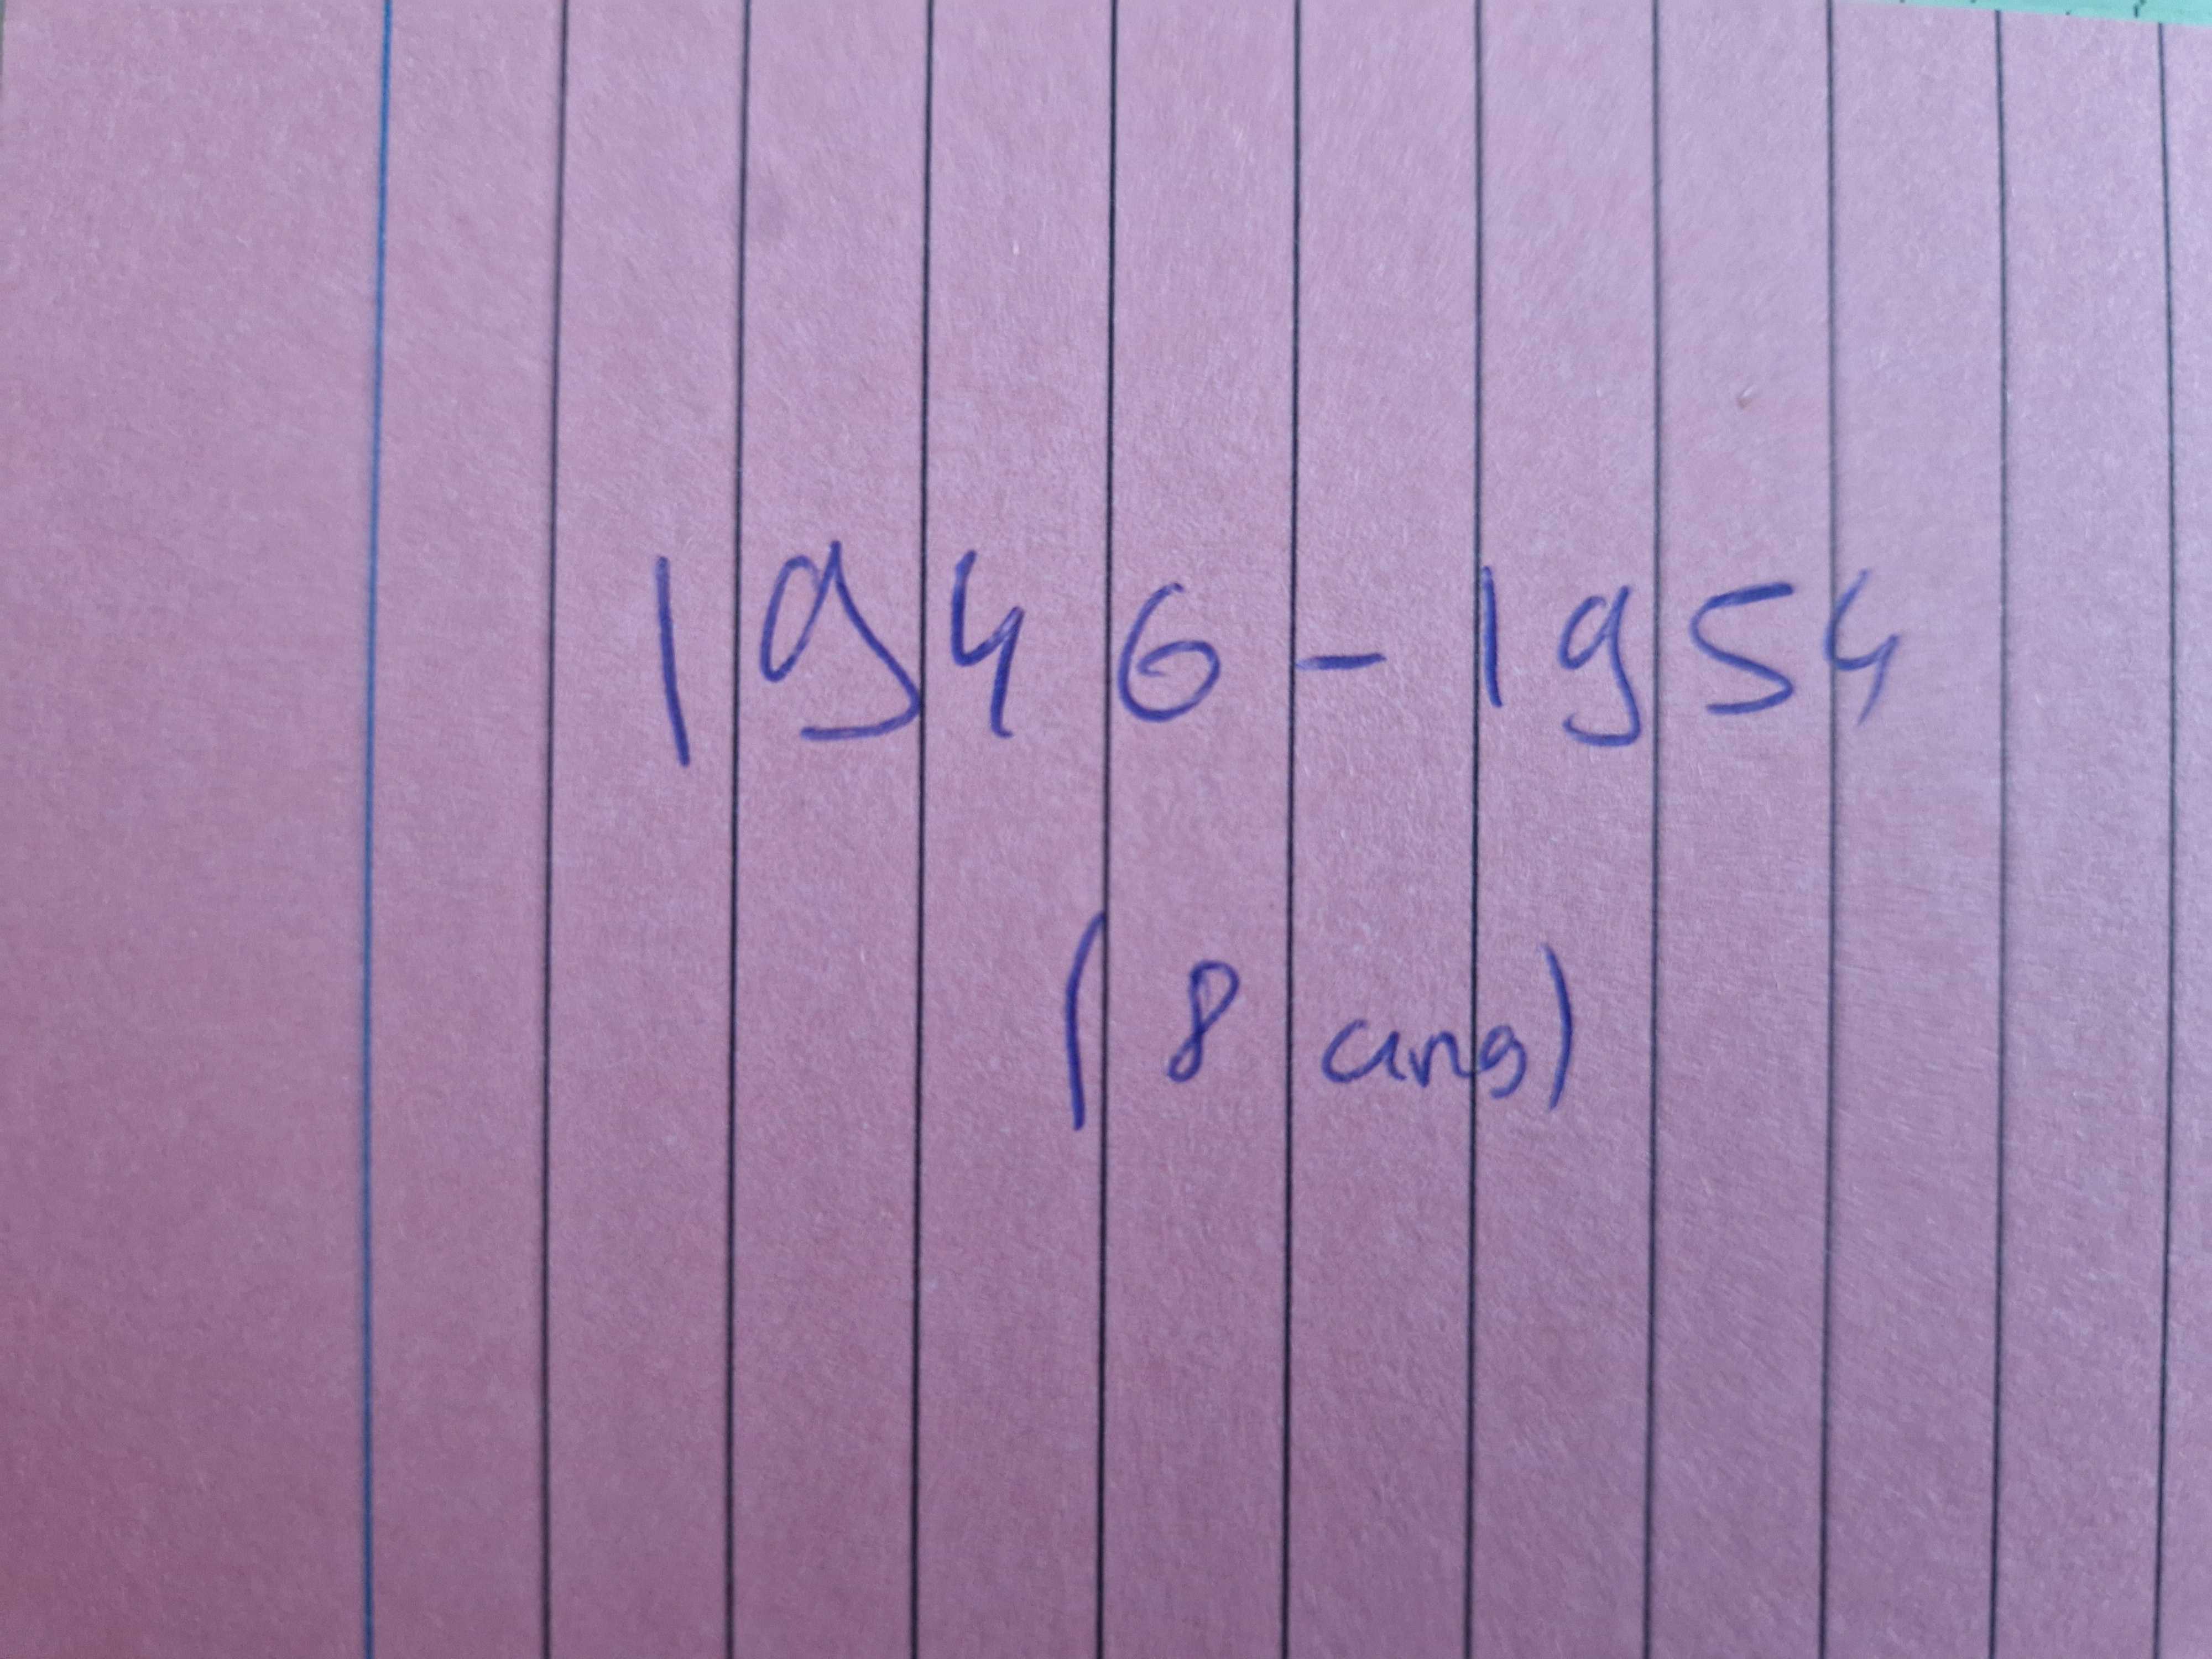 1946-1954
(8 ans)